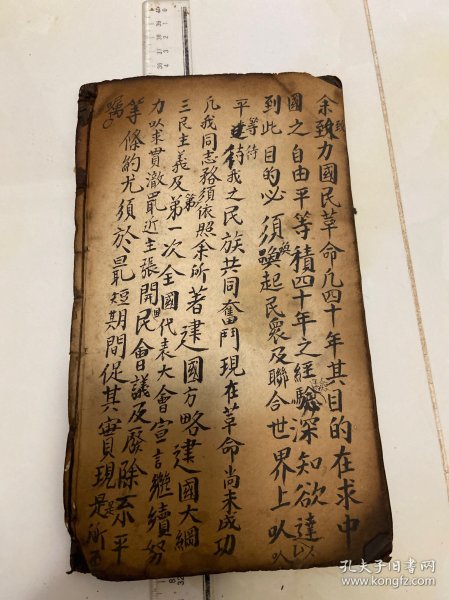 余致力國民革命凡四十年其目的在求中
國之自由平等積四十年之經驗深知欲達
到此目的必須喚起民衆及聯合世界上以
平等待我之民族共同奮鬥現在革命尚未成功
凡我同志務須依照余所著建國方略建國大綱
三民主義及第一次全國代表大會宣言繼續努
力以求貫澈最近主張開國民會議及廢除不平
等條約尤須於最短期間促其實現是所至
囑
孔夫子旧书网